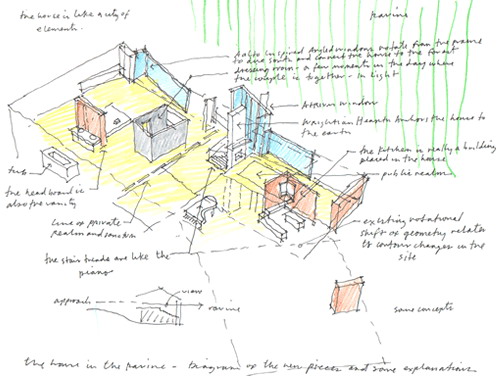 the house is like a city of
elements.
ravine
Aalto inspired angled windows rotate from the ravine
to due south and connect the house to the forest
dressing room - a few moments in the day where
the couple is together - in light
Asterisk window
Wrightian Hearth anchors the house to
the earth
the kitchen is really a building
placed in the house
public realm
tub
the headboard is
also the vanity
Line of private
Realm and
the stair treads are like the
piano
existing rotational
shift of geometry relates
to contour changes in the
site
approach
view
ravine
same concepts
the house in the ravine - Diagram of the new pieces and some explanations